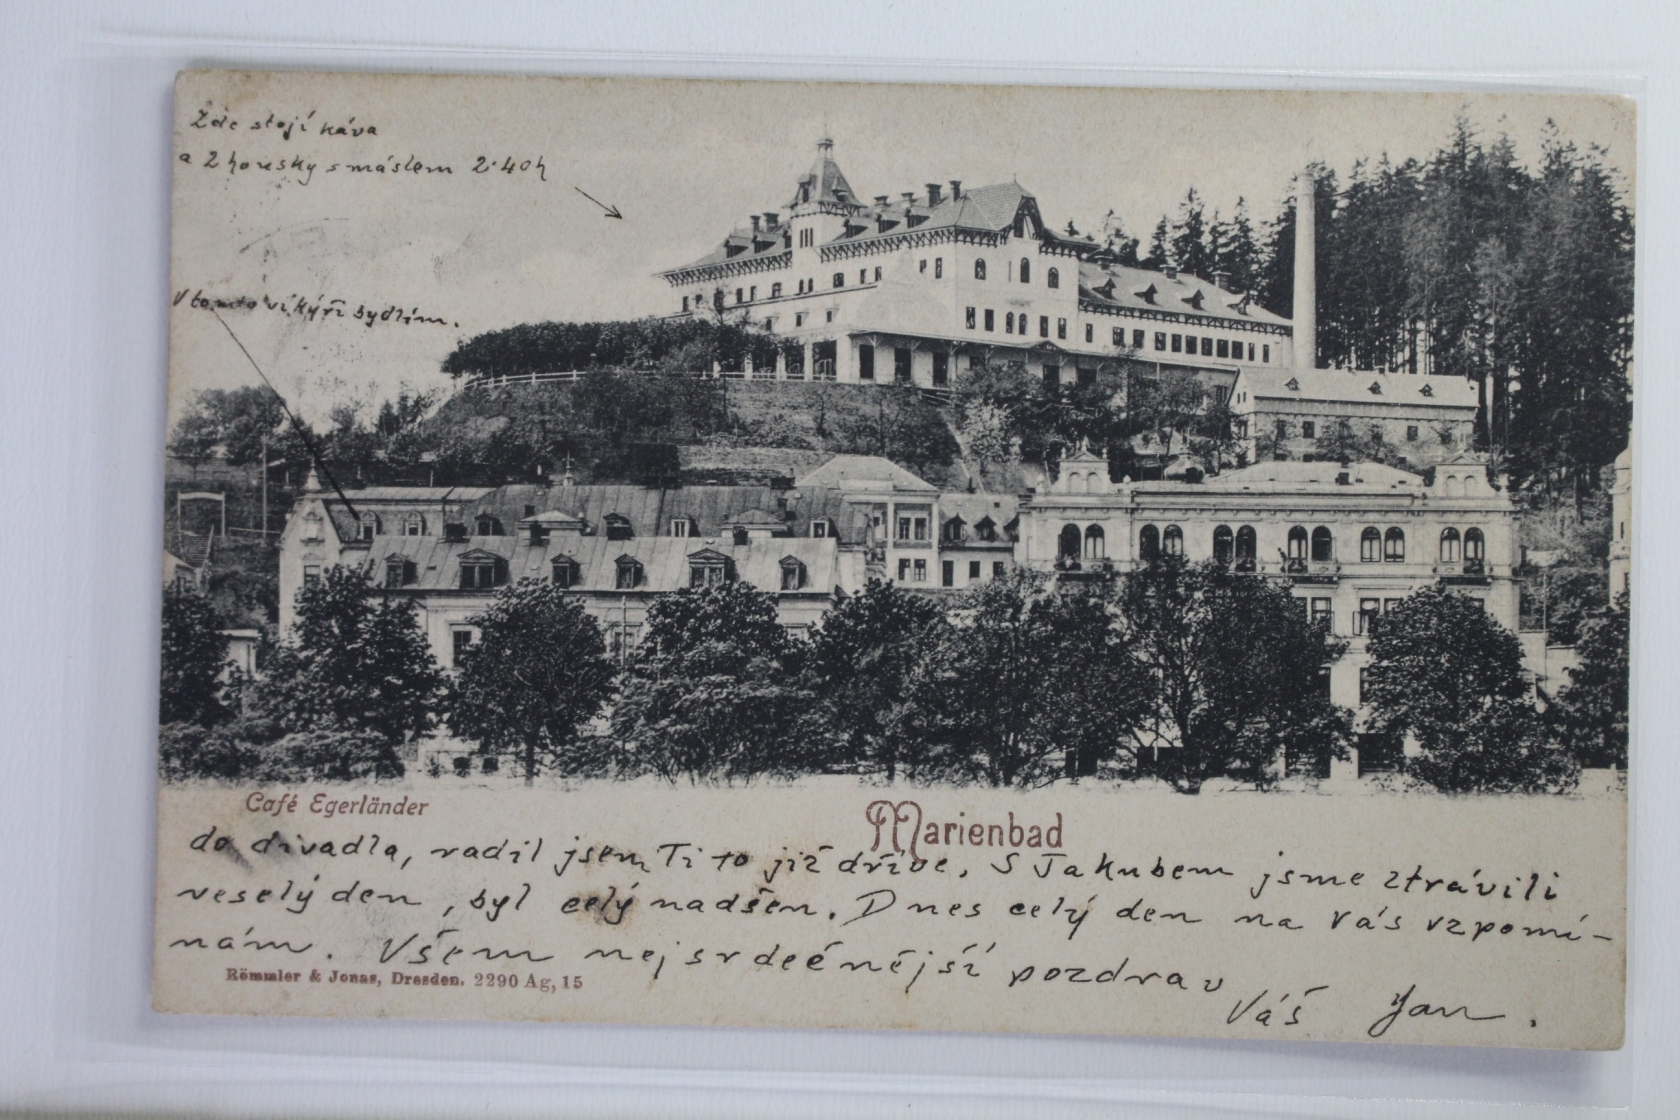 Zde stojí káva
a 2 housky s máslem 2.40 h
V tomto vikýři bydlím.
Café Egerländer
Marienbad
do divadla, radil jsem Ti to již dříve. S Jakubem jsme ztrávili
veselý den, byl celý nadšen. Dnes celý den na Vás vzpomí-
nám. Všem nejsrdečnější pozdrav
Römmler & Jonas, Dresden. 2290 Ag, 15
Váš Jan.